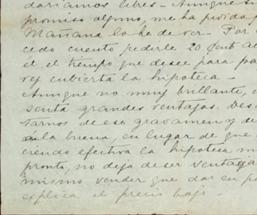 daríamos libres. Aunque sin
promiso alguno, me ha
Mañana lo he de ver. Por
cedo cuento pedirle 20 cent al
él el tiempo que desee para pa
vez cubierta la hipoteca.
Aunque no muy brillante,
senta grandes ventajas. Des
tarnos de ese gravamen y de
a la buena, en lugar de que
ciendo efectiva la hipoteca
pronto, no deja de ser ventaja
mismo vender que dar en p
explica el precio bajo.